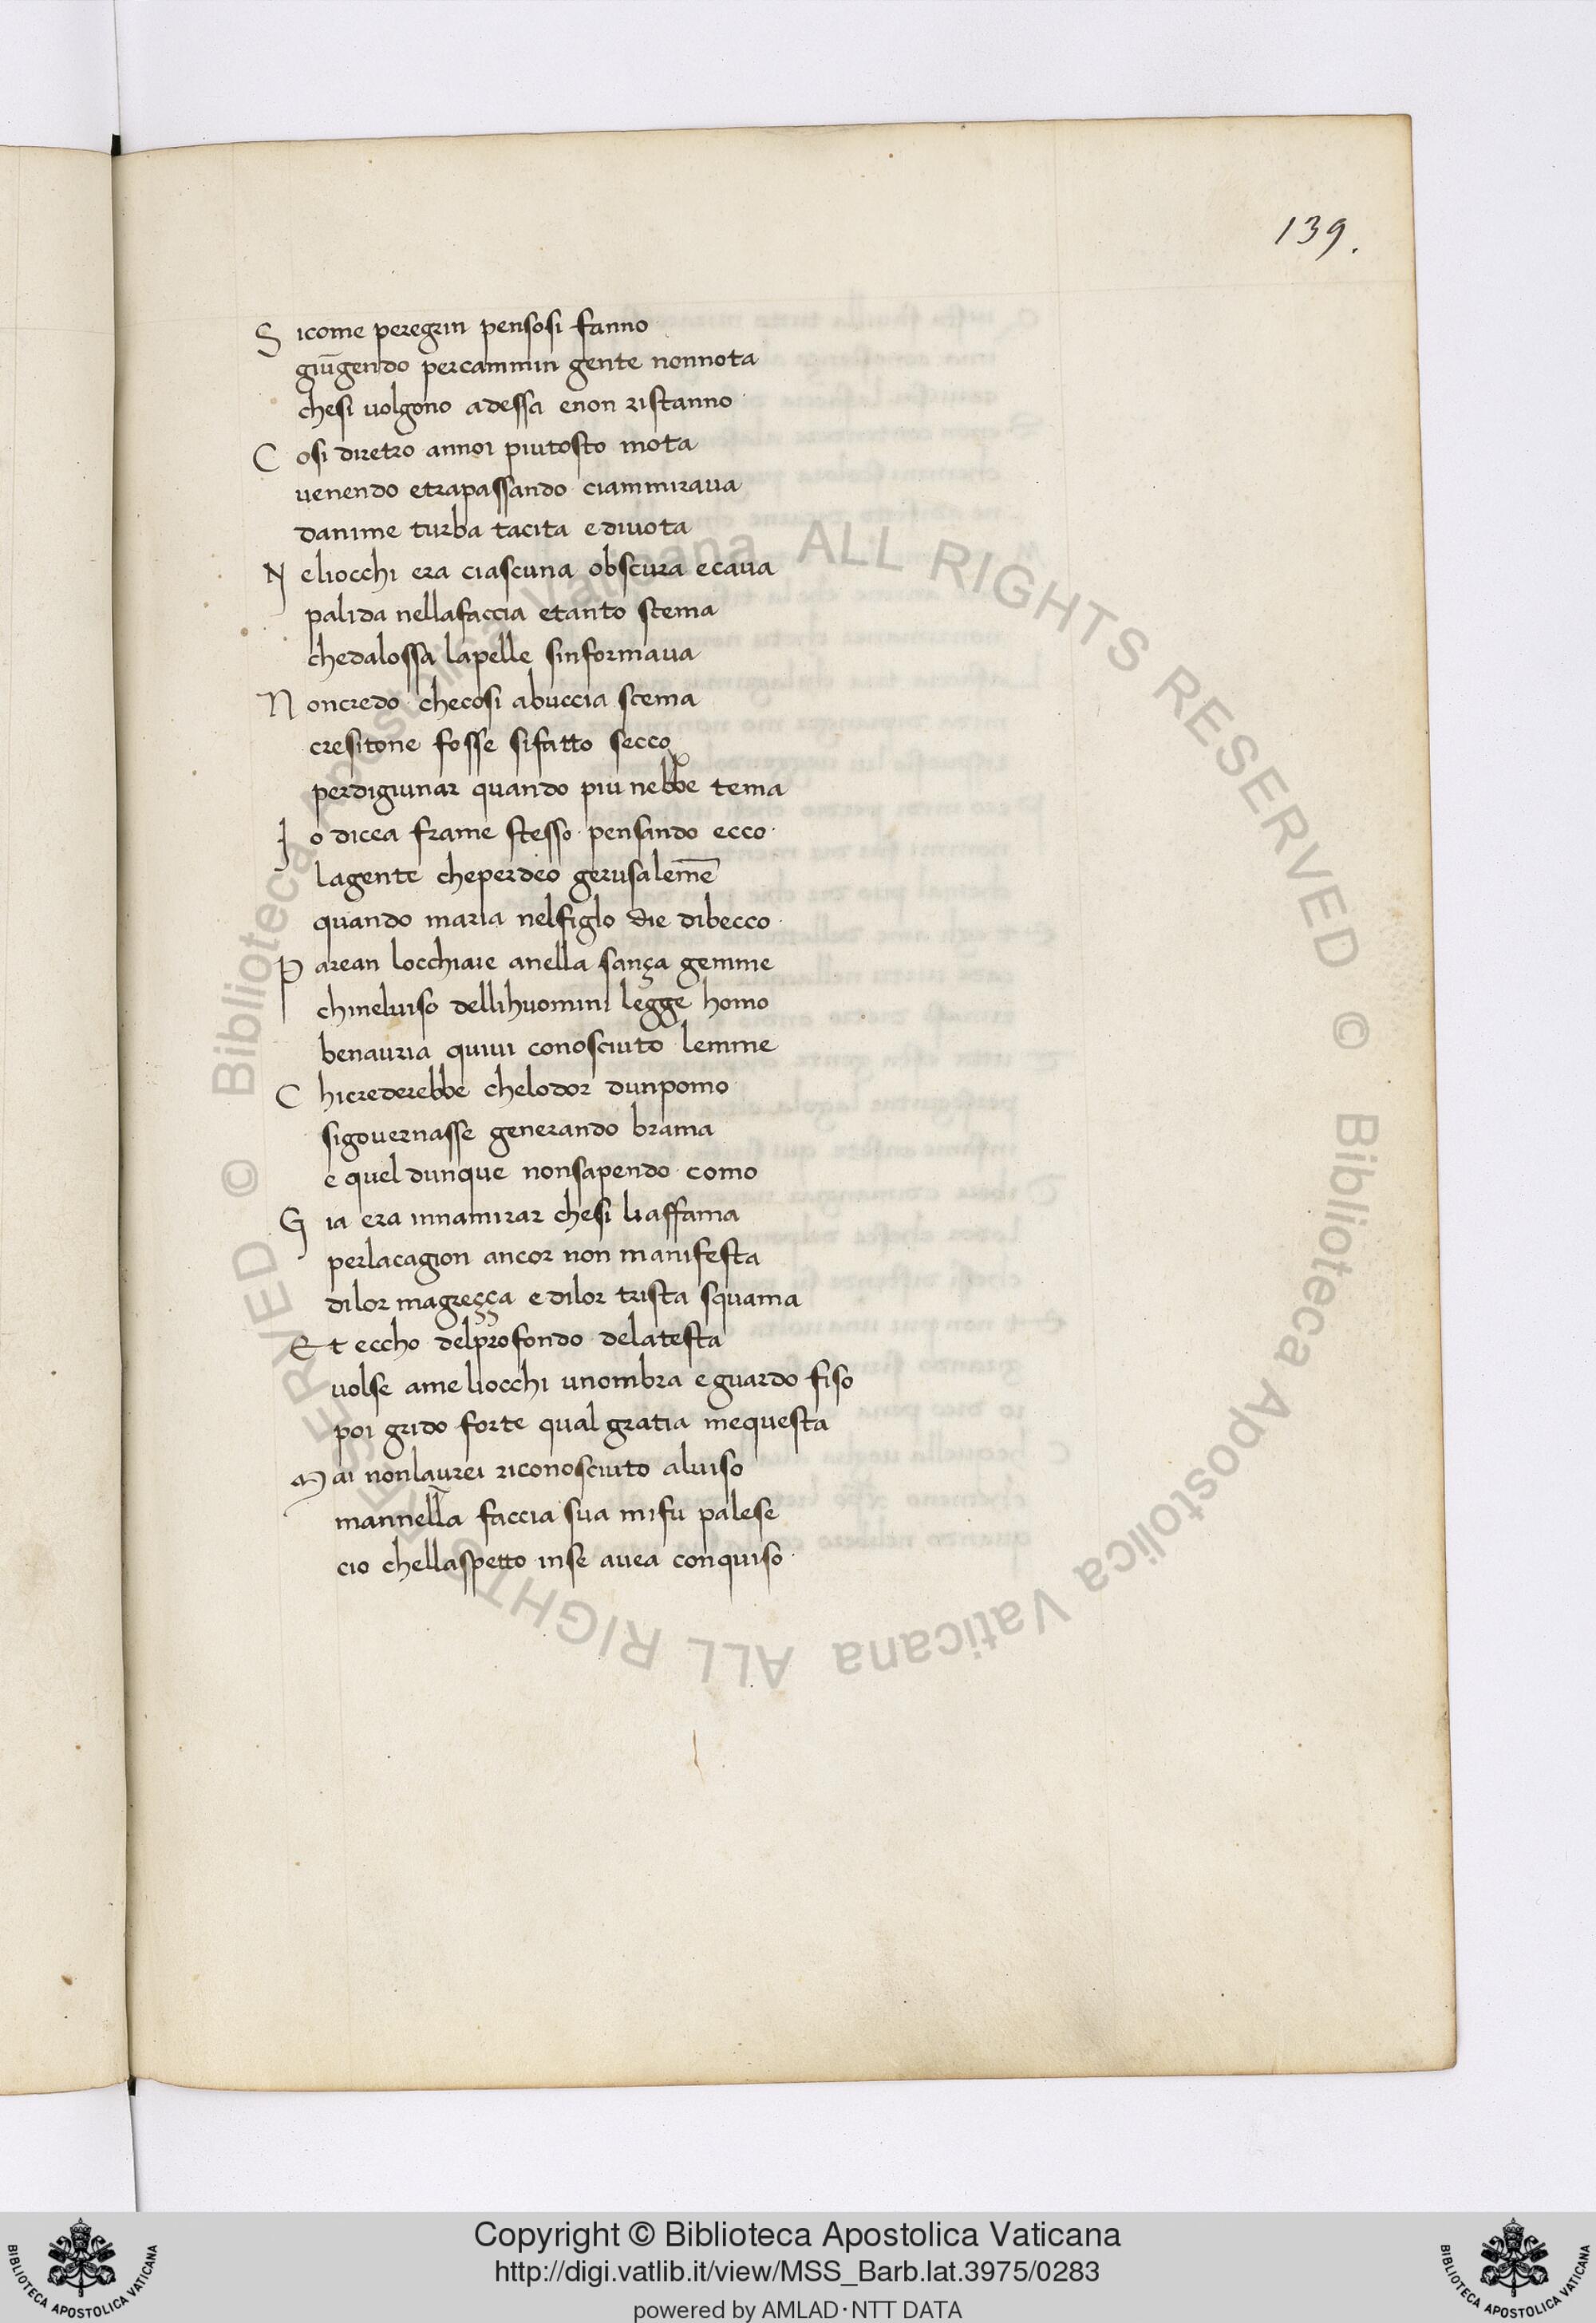 139.
S icome peregrin pensosi fanno
giūgendo percammin gente nonnota
chesi uolgono adessa enon ristanno
C osi diretro annoi piutosto mota
uenendo etrapassando ciammiraua
danime turba tacita ediuota
N eliocchi era ciascuna obscura ecaua
palida nellafaccia etanto scema
chedalossa lapelle sinformaua
N oncredo checosi abuccia strema
cresitone fosse sifatto secco
perdigiunar quando piu nebbe tema
I o dicea frame stesso pensando ecco
lagente cheperdeo gerusalem̄e
quando maria nelfiglo die dibecco
P arean locchiaie anella sança gemme
chineluiso dellihuomini legge homo
benauria quiui conosciuto lemme
C hicrederebbe chelodor dunpomo
sigouernasse generando brama
e quel dunque nonsapendo como
G ia era innamirar chesi liaffama
perlacagion ancor non manifesta
dilor magreçça edilor trista squama
E t eccho delprofondo delatesta
uolse ameliocchi unombra eguardo fiso
poi grido forte qual gratia mequesta
M ai nonlaurei riconosciuto aluiso
mannella faccia sua mifu palese
cio chellaspetto inse auea conquiso
© Biblioteca Apostolica Vaticana ALL RIGHTS RESERVED © Biblioteca Apostolica Vaticana ALL RIGHTS RESERVED
Copyright © Biblioteca Apostolica Vaticana
http://digi.vatlib.it/view/MSS_Barb.lat.3975/0283
powered by AMLAD·NTT DATA
BIBLIOTECA APOSTOLICA VATICANA
BIBLIOTECA APOSTOLICA VATICANA